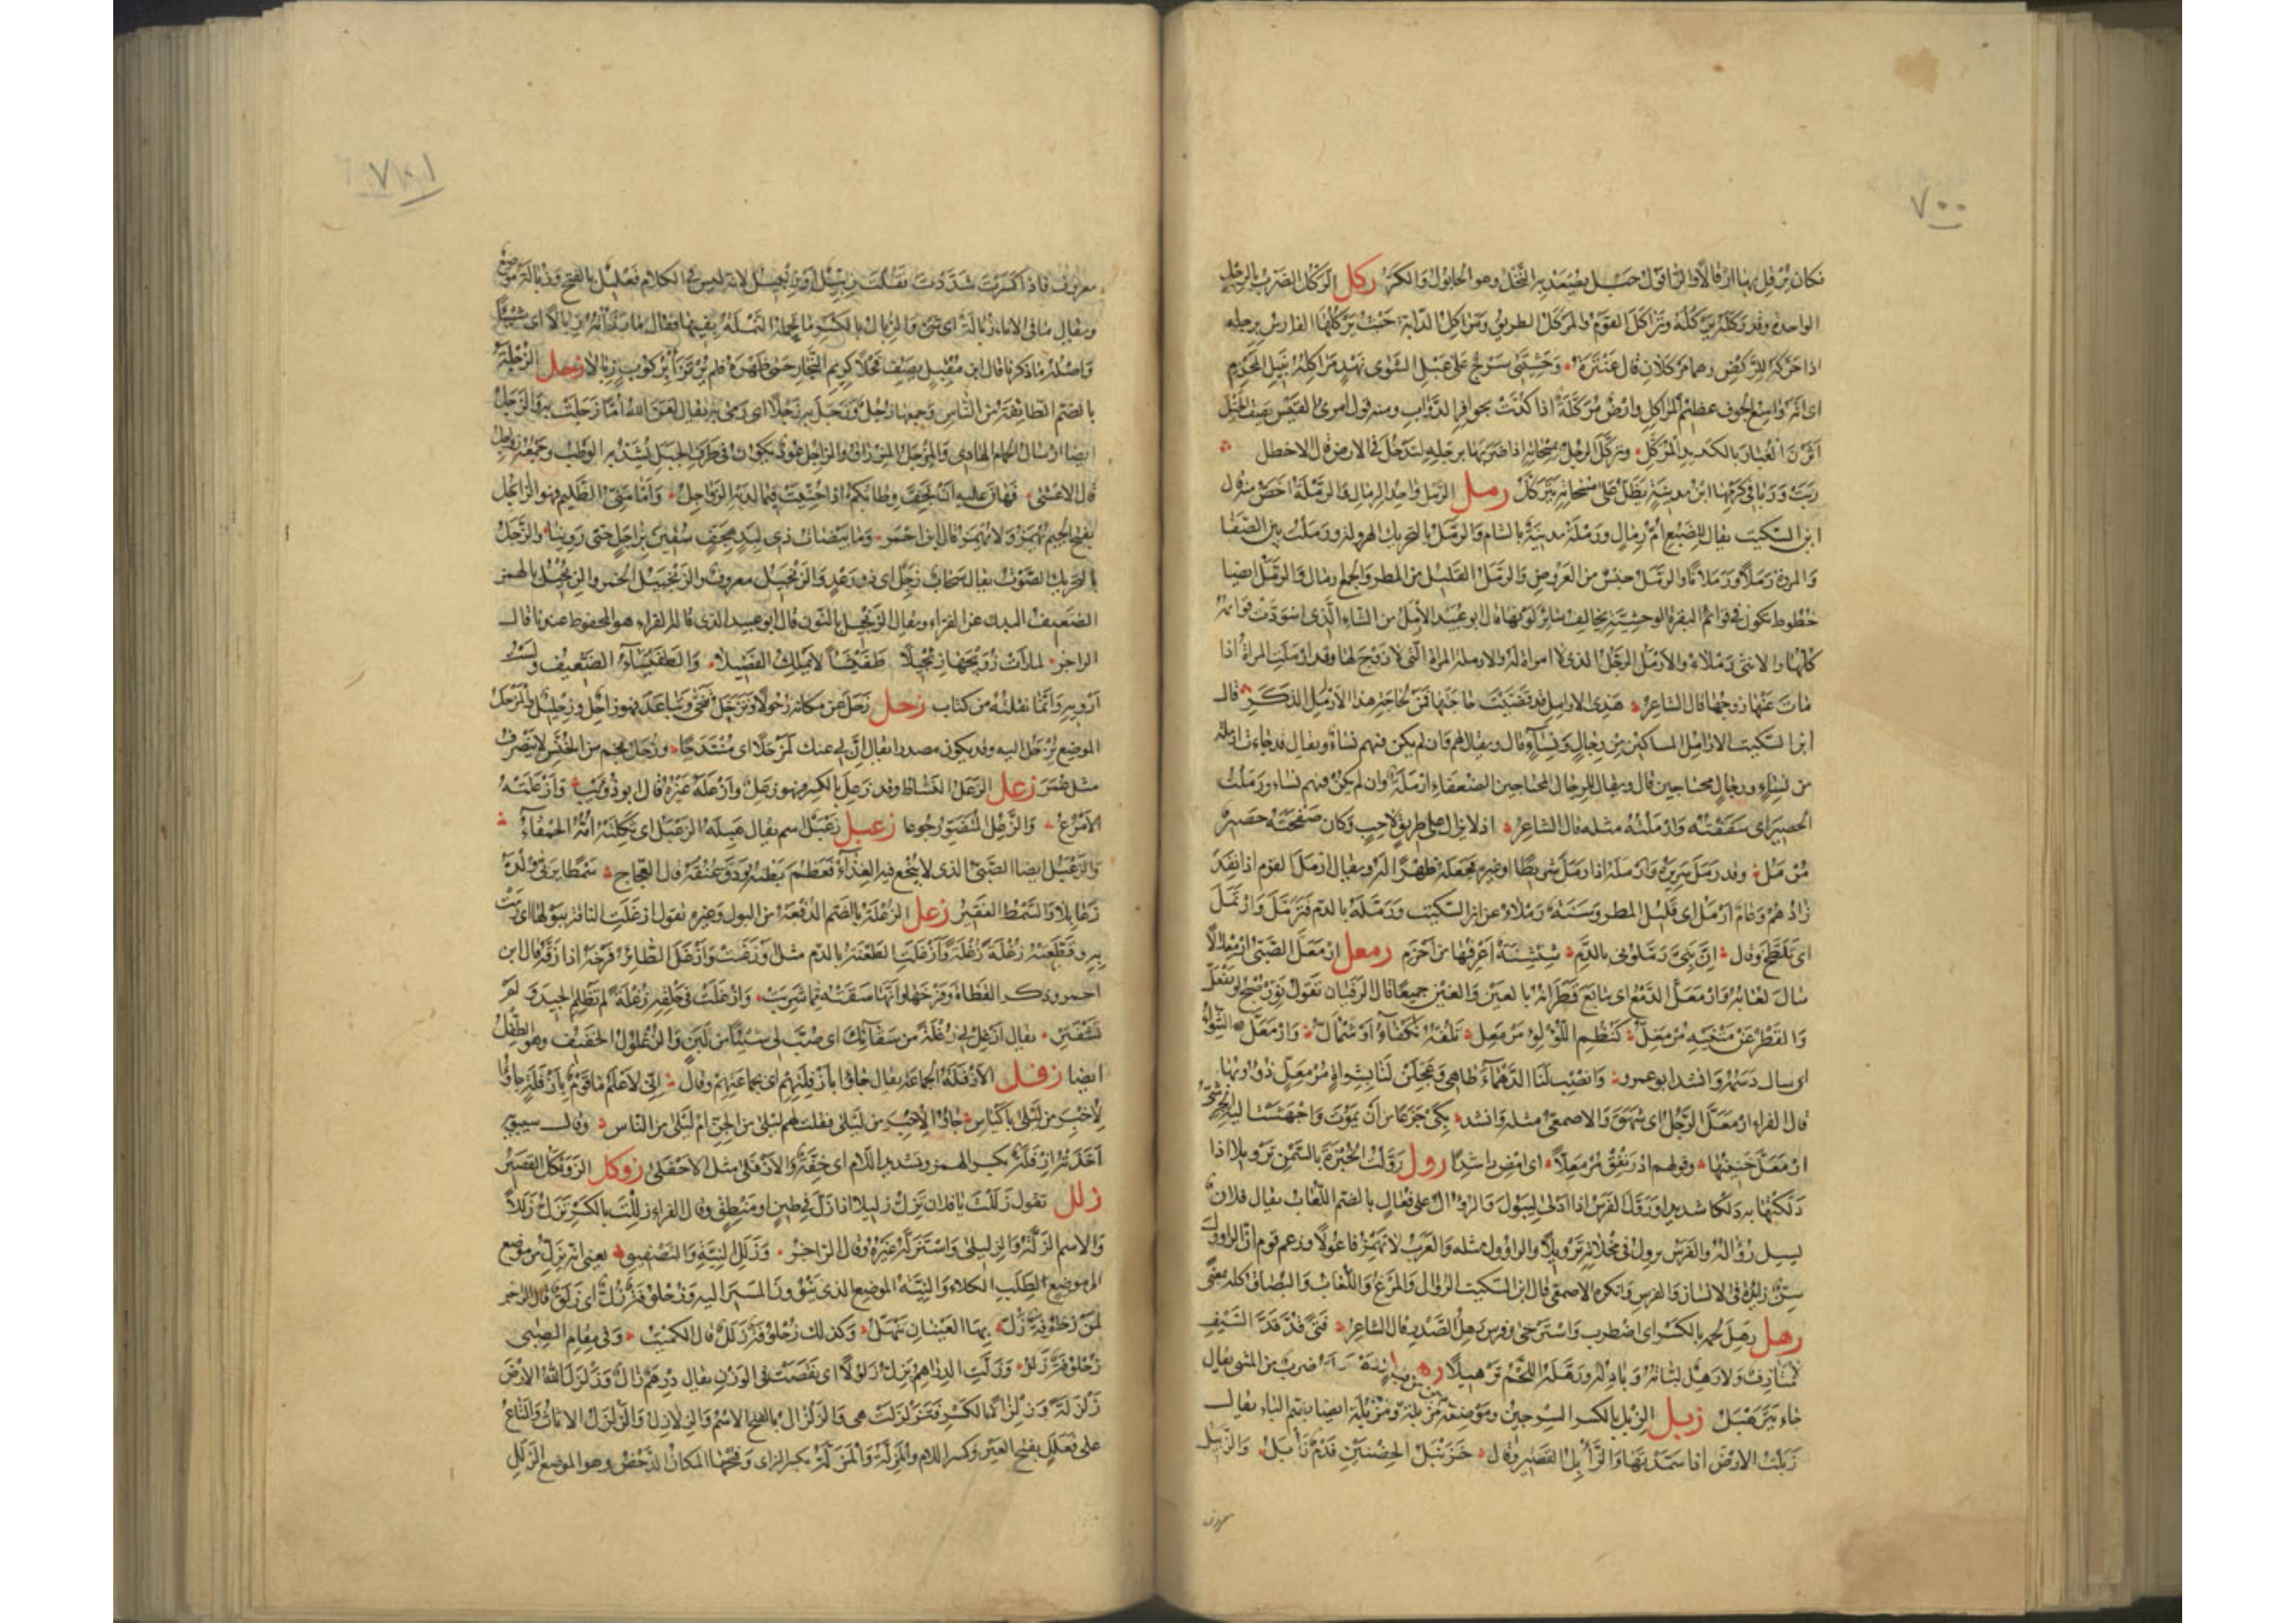 ٧٠٠
فكان يرفل بها ارفالا والراقول حبل يصعد به النخل وهو الحابول والكر ركل الركل الضرب بالرجل
الواحدة وقد ركله يركله وتراكل القوم والمركل الطريق ومراكل الدابة حيث يركلها الفارس برجله
اذا حركه للركض وهما مركلان قال عنترة وحشيتي سرج على عبل الشوى نهد مراكله نبيل المحزم
اى انه واسع الجوف عظيم المراكل وارض مركلة اذا كدت بحوافر الدواب ومنه قول امرئ القيس يصف الخيل
اثرن الغبار بالكديد المركل وتركل الرجل بمسحاته اذا ضربها برجله لتدخل في الارض قال الاخطل
ربت وربا في كرمها ابن مدينة يظل على مسحاته يتركل رمل الرمل واحد الرمال والرملة اخص منه قال
ابن السكيت يقال للضبع ام رمال ورملة مدينة بالشام والرمل بالتحريك الهرولة ورملت بين الصفا
والمروة رملا ورملانا والرمل جنس من العروض والرمل القليل من المطر والجمع رمال والرمل ايضا
خطوط تكون في قوائم البقرة الوحشية يخالف سائر لونها قال ابو عبيد الارمل من الشاء الذى اسودت قوائمه
كلها والانثى رملاء والارمل الرجل الذى لا امراة له والارملة المراة التى لا زوج لها وقد ارملت المراة اذا
مات عنها زوجها قال الشاعر هذى الارامل قد قضيت حاجتها فمن لحاجة هذا الارمل الذكر قال
ابن السكيت الارامل المساكين من رجال ونساء قال ويقال لهم وان لم يكن فيهم نساء ويقال قد جاءت ارملة
من نساء ورجال محتاجين قال ويقال للرجال المحتاجين الضعفاء ارملة وان لم يكن فيهم نساء ورملت
الحصير اى سففته وارملته مثله قال الشاعر اذ لا يزال على طريق لاحب وكان صفحته حصير
مرمل وقد رمل سريره وارمله اذا رمل شريطا او غيره فجعله ظهرا له ويقال ارمل القوم اذا نفد
زادهم وعام ارمل اى قليل المطر وسنة رملاء عن ابن السكيت ورمله بالدم فترمل وارتمل
اى تلطخ وقال ان بني رملوني بالدم شنشنة اعرفها من اخزم رمعل ارمعل الصبى ارمعلالا
سال لعابه وارمعل الدمع اى تتابع قطرانه بالعين والغين جميعا قال الزفيان تقول نور صبح لو يفعل
والقطر عن متنيه مرمعل كنظم اللؤلؤ مرمعل تلفه نكباء او شمأل وارمعل الشواء
اى سال دسمه وانشد ابو عمرو وانصب لنا الدهماء طاهى وعجلن لنا بشواة مرمعل ذؤوبها
قال الفراء ارمعل الرجل اى شهق والاصمعى مثله وانشد بكى جزعا من ان يموت واجهشت اليه الجرشى
ارمعل خنينها وقولهم ادرنفق مرمعلا اى امض راشدا رول رولت الخبزة بالسمن ترويلا اذا
دلكتها به دلكا شديدا ورول الفرس اذا ادلى ليبول والروال على فعال بالضم اللعاب يقال فلان
يسيل رواله والفرس يرول في مخلاته ترويلا والراؤول مثله والعرب لا تهمز فاعولا وزعم قوم ان الراوول
سن زائدة في الانسان والفرس وانكره الاصمعى قال ابن السكيت الروال والمرغ واللعاب والبصاق كله بمعنى
رهل رهل لحمه بالكسر اى اضطرب واسترخى وفرس رهل الصدر قال الشاعر فتى قد قد السيف
لا متازف ولا رهل لباته وبادله ورهله اللحم ترهيلا ضرب من المشى يقال
جاء يترهبل زبل الزبل بالكسر السرجين وموضعه مزبلة ومزبلة ايضا بضم الباء يقال
زبلت الارض اذا سمدتها والزأبل القصير وقال حزنبل الحضنين فدم زأبل والزبيل
معروف
٧٠١
معروف فاذا كسرت شددت فقلت زبيل او زنبيل لانه ليس في الكلام فعليل بالفتح وزبالة موضع
ويقال ما في الاناء زبالة اى شئ والزبال بالكسر ما تحمله النملة بفيها ويقال ما رزأته زبالا اى شيئا
واصله ما ذكرنا قال ابن مقبل يصف فحلا كريم النجار حمى ظهره فلم يرتزأ بركوب زبالا زجل الزجلة
بالضم الطائفة من الناس وجمعها زجل وزجل به زجلا اى رمى به يقال لعن الله اما زجلت به والزجل
ايضا ارسال الحمام الهادى والمزجل المزراق والزاجل عود يكون في طرف الحبل يشد به الوطب وجمعه زواجل
قال الاعشى فهان عليه ان تجف وطابكم اذا حنيت فيما لديه الزواجل واما منى الظليم فهو الزاجل
بفتح الجيم تهمز ولا تهمز قال ابن احمر وما بيضات ذى لبد هجف سقين بزاجل حتى روينا والزجل
بالتحريك الصوت يقال سحاب زجل اى ذو رعد والزنجبيل معروف والزنجبيل الخمر والزئجيل بالهمز
الضعيف البدن عن الفراء ويقال الزنجيل بالنون قال ابو عبيد الذى قاله الفراء هو المحفوظ عندنا قال
الراجز لما رات زويجها زنجيلا طفيشأ لا يملك الفصيلا والطفيشأ الضعيف ولست
ارويه وانما نقلته من كتاب زحل زحل عن مكانه زحولا وتزحل تنحى وتباعد فهو زاحل وزحليل والمزحل
الموضع تزحل اليه وقد يكون مصدرا يقال ان لى عنك لمزحلا اى منتدحا وزحل نجم من الخنس لا ينصرف
مثل عمر زعل الزعل النشاط وقد زعل بالكسر فهو زعل وازعله غيره قال ابو ذؤيب وازعلته
الامرع والزعل المتضور جوعا زعبل زعبل اسم يقال هبلته الزعبل اى ثكلته امه الحمقاء
والزعبل ايضا الصبى الذى لا ينجع فيه الغذاء فعظم بطنه ودق عنقه قال العجاج سمطا يربى ولدة
زعابلا والسمط الفقير زغل الزغلة بالضم الدفعة من البول وغيره تقول ازغلت الناقة ببولها اى رمت
به وقطعته زغلة زغلة وازغلت الطعنة بالدم مثل اوزغت وازغل الطائر فرخه اذا زقه قال ابن
احمر وذكر القطاة وفرخها وانها سقته مما شربت وازغلت في حلقه زغلة لم تظلم الجيد ولم
تشفتر يقال ازغل لى زغلة من سقائك اى صب لى شيئا من لبن والزغلول الخفيف وهو الطفل
ايضا زفل الازفلة الجماعة يقال جاؤا بازفلتهم اى بجماعتهم وقال انى لاعلم ما قوم بازفلة جاؤا
لاخبر من ليلى باكياس جاؤا لاخبر من ليلى فقلت لهم ليلى من الجن ام ليلى من الناس وقال سيبويه
اخذته ازفلة بكسر الهمزة وتشديد اللام اى خفة والازفلى مثل الاجفلى زوكل الزونكل القصير
زلل تقول زللت يا فلان تزل زليلا اذا زل في طين او منطق وقال الفراء زللت بالكسر تزل زللا
والاسم الزلة والزليلى واستزله غيره وقال الراجز وزلل النية والتصفيق يعنى انه يزل من موضع
الى موضع لطلب الكلاء والنية الموضع الذى ينوون المسير اليه وزحلوقة زل اى زلق قال الراجز
لمن زحلوقة زل بها العينان تنهل وكذلك زحلوقة زلل قال الكميت وفي مقام الصبى
زحلوقة زلل وزلت الدراهم تزل زلولا اى نقصت في الوزن يقال درهم زال وزلزل الله الارض
زلزلة وزلزالا بالكسر فتزلزلت هى والزلزال بالفتح الاسم والزلازل والزلزل الاثاث والمتاع
على فعلل بفتح العين وكسر اللام والمزلة والمزلة بكسر الزاى وفتحها المكان الدحض وهو الموضع الزلل